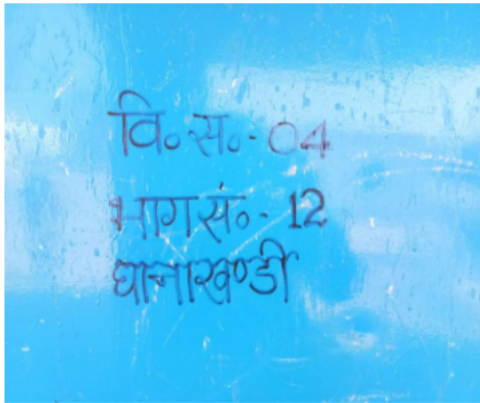 वि॰ स॰- 04
भाग सं॰- 12
घानाखण्डी